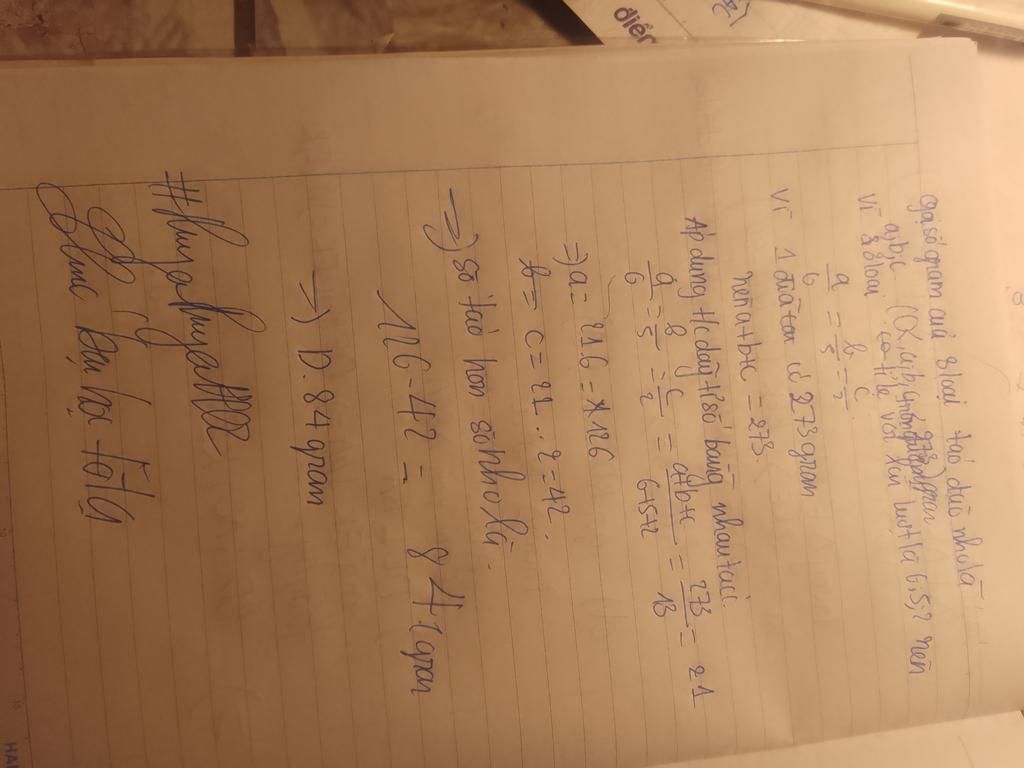 Gọi số gram cuả 3 loại táo dâu nho là
a, b, c
Vì 3 loại có tỉ lệ với lần lượt là 6,5,2 nên
a/6 = b/5 = c/2
Vì 1 đĩa tcu có 273 gram
nên a+b+c = 273.
Áp dụng t/c dãy tỉ số bằng nhau taci:
a/6 = b/5 = c/2 = a+b+c/6+5+2 = 273/13 = 21
=> a = 21.6 = 126
c = 21.2 = 42.
=> số táo hơn số nho là.
126 - 42 = 84 (gram
→ D. 84 gram
chúc bạn học tốt
điể
HẢ